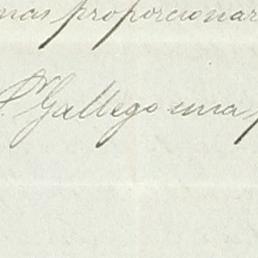 mas proporcionar
Sr. Gallego una